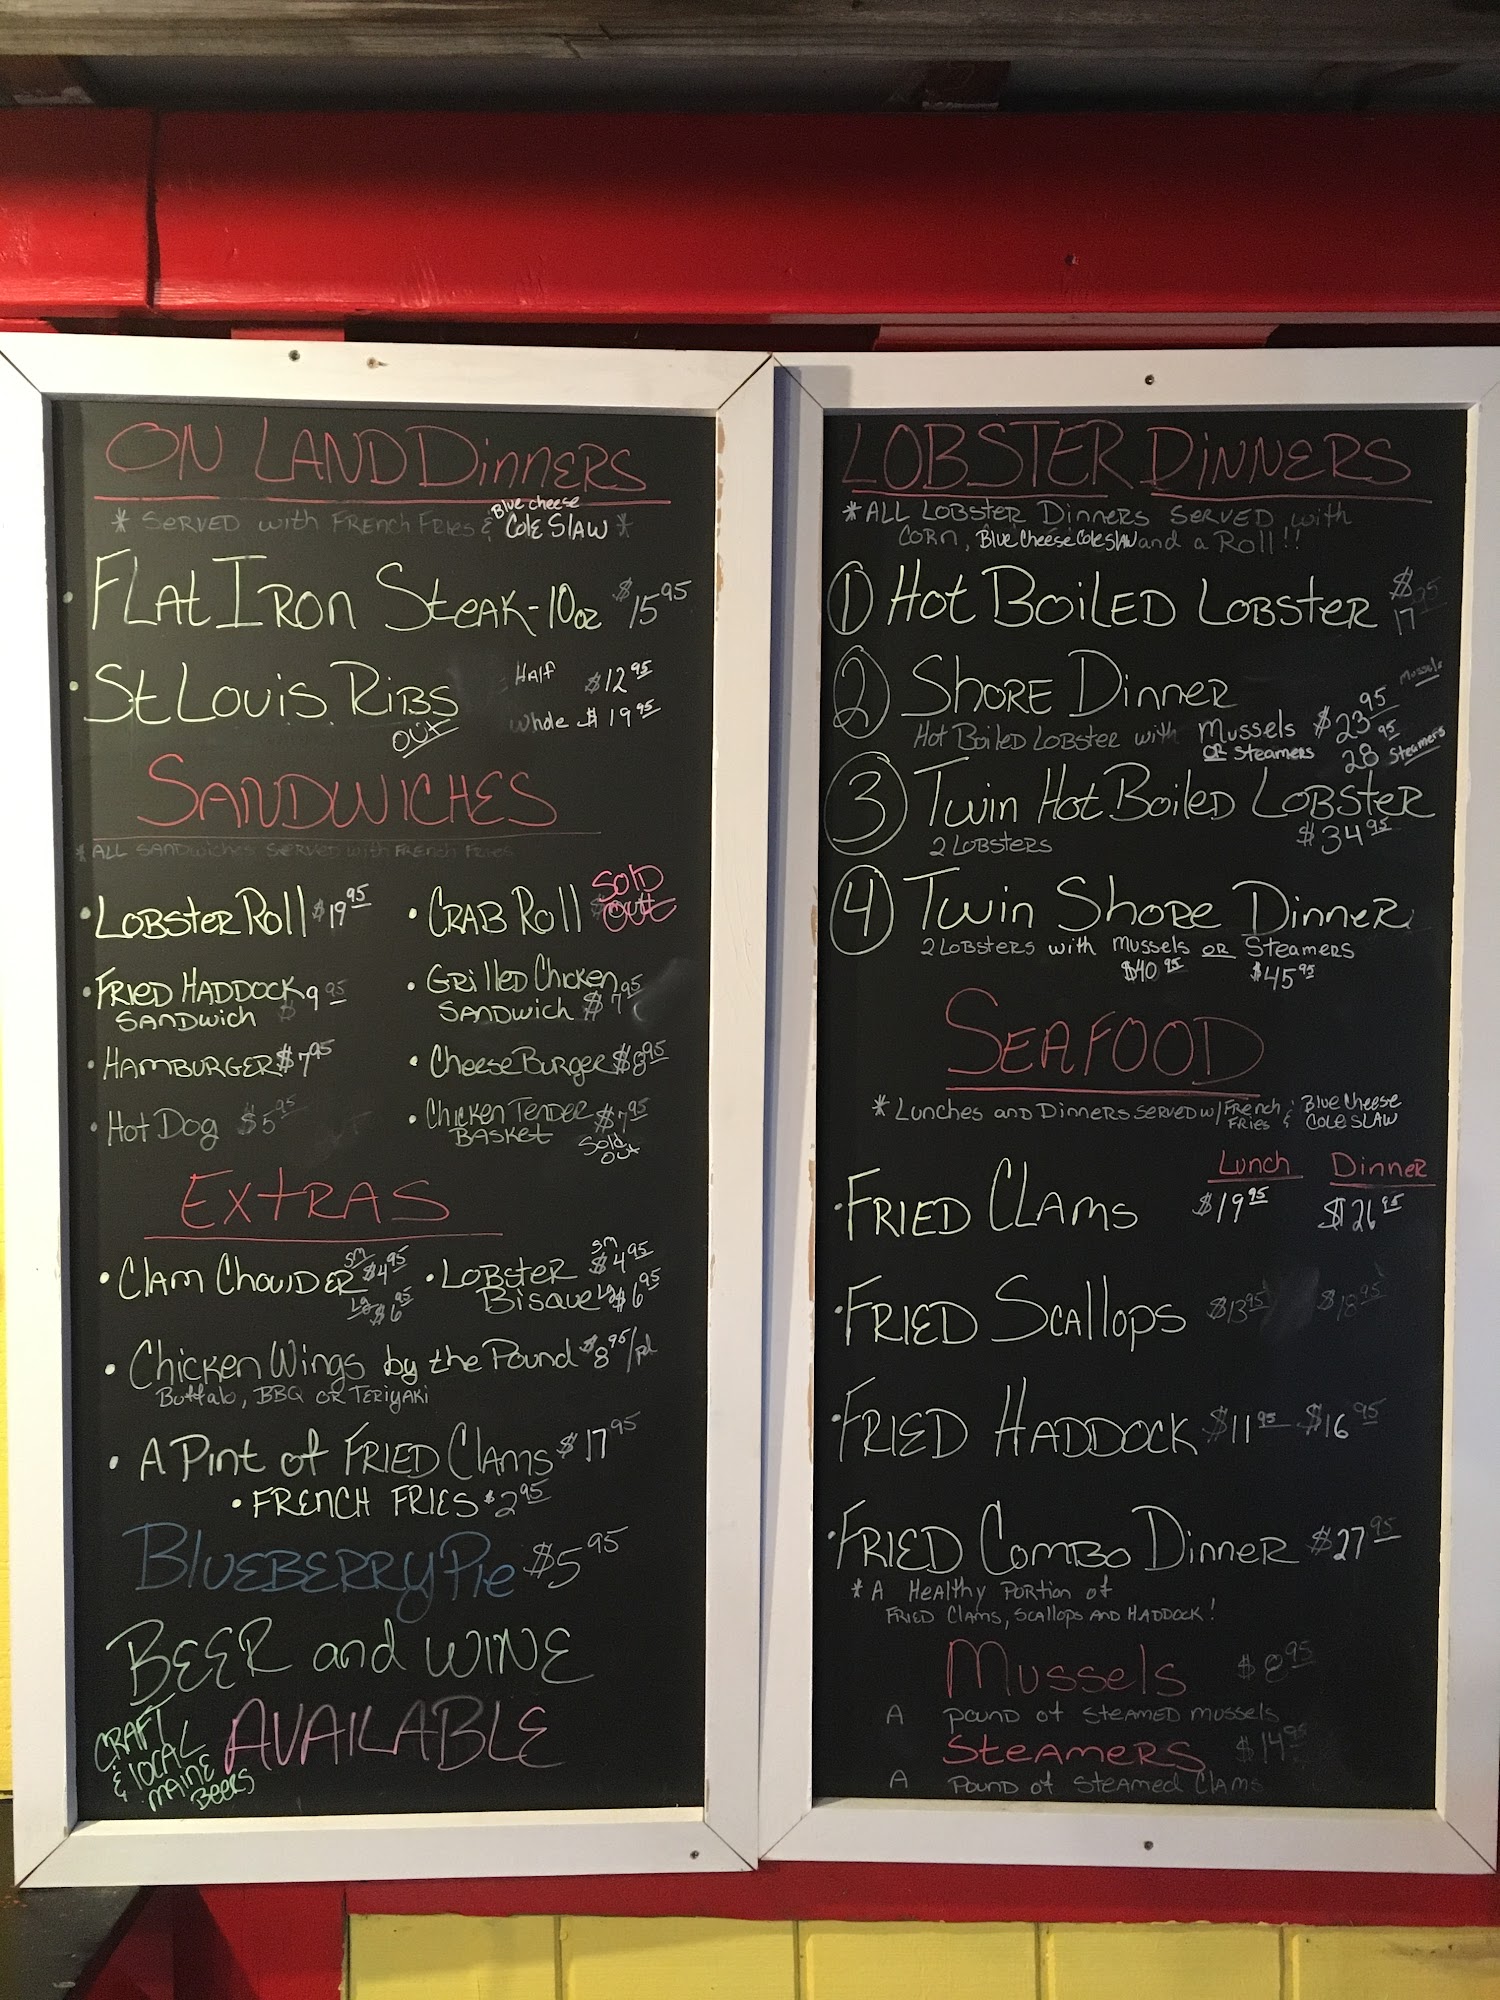 ON LAND DINNERS
* SERVED with FRENCH FRIES & Blue cheese COLE SLAW *
• FLAT IRON STEAK - 10oz $15.95
• St Louis RIBS Half $12.95
OUT Whole $19.95
SANDWICHES
* ALL SANDWICHES SERVED with FRENCH FRIES
• LOBSTER Roll $19.95
• CRAB Roll SOLD OUT
• FRIED HADDOCK SANDWICH $9.95
• GRILLED CHICKEN SANDWICH $7.95
• HAMBURGER $7.95
• CHEESE BURGER $8.95
• HOT DOG $5.95
• CHICKEN TENDER BASKET $7.95 Sold Out
EXTRAS
• CLAM CHOWDER sm $4.95 Lg $6.95
• LOBSTER BISQUE sm $4.95 Lg $6.95
• CHICKEN WINGS by the POUND $8.95/
Buffalo, BBQ OR TERIYAKI
• A PINT of FRIED CLAMS $17.95
• FRENCH FRIES $2.95
BLUEBERRY PIE $5.95
BEER and WINE
AVAILABLE
CRAFT & LOCAL MAINE BEERS
LOBSTER DINNERS
* ALL LOBSTER DINNERS SERVED with
CORN, Blue Cheese Coleslaw and a Roll!!
① HOT BOILED LOBSTER $17
② SHORE DINNER
HOT BOILED LOBSTER with Mussels $23.95 Mussels
OR Steamers 28.95 Steamers
③ TWIN HOT BOILED LOBSTER
2 LOBSTERS $34.95
④ TWIN SHORE DINNER
2 LOBSTERS with Mussels OR Steamers
$40.95 $45.95
SEAFOOD
* Lunches and DINNERS SERVED w/ French Fries & Blue Cheese COLE SLAW
Lunch Dinner
• FRIED CLAMS $19.95 $26.95
• FRIED SCALLOPS $13.95 $18.95
• FRIED HADDOCK $11.95 $16.95
• FRIED COMBO DINNER $27.95
* A HEALTHY PORTION of
FRIED CLAMS, SCALLOPS AND HADDOCK!
MUSSELS $8.95
A POUND of STEAMED MUSSELS
STEAMERS $14.95
A POUND of STEAMED CLAMS